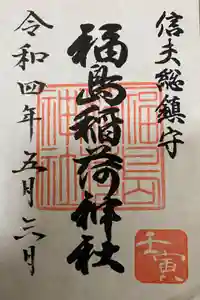 信夫総鎮守
福島稲荷神社
令和四年五月六日
福島稲荷神社
壬寅